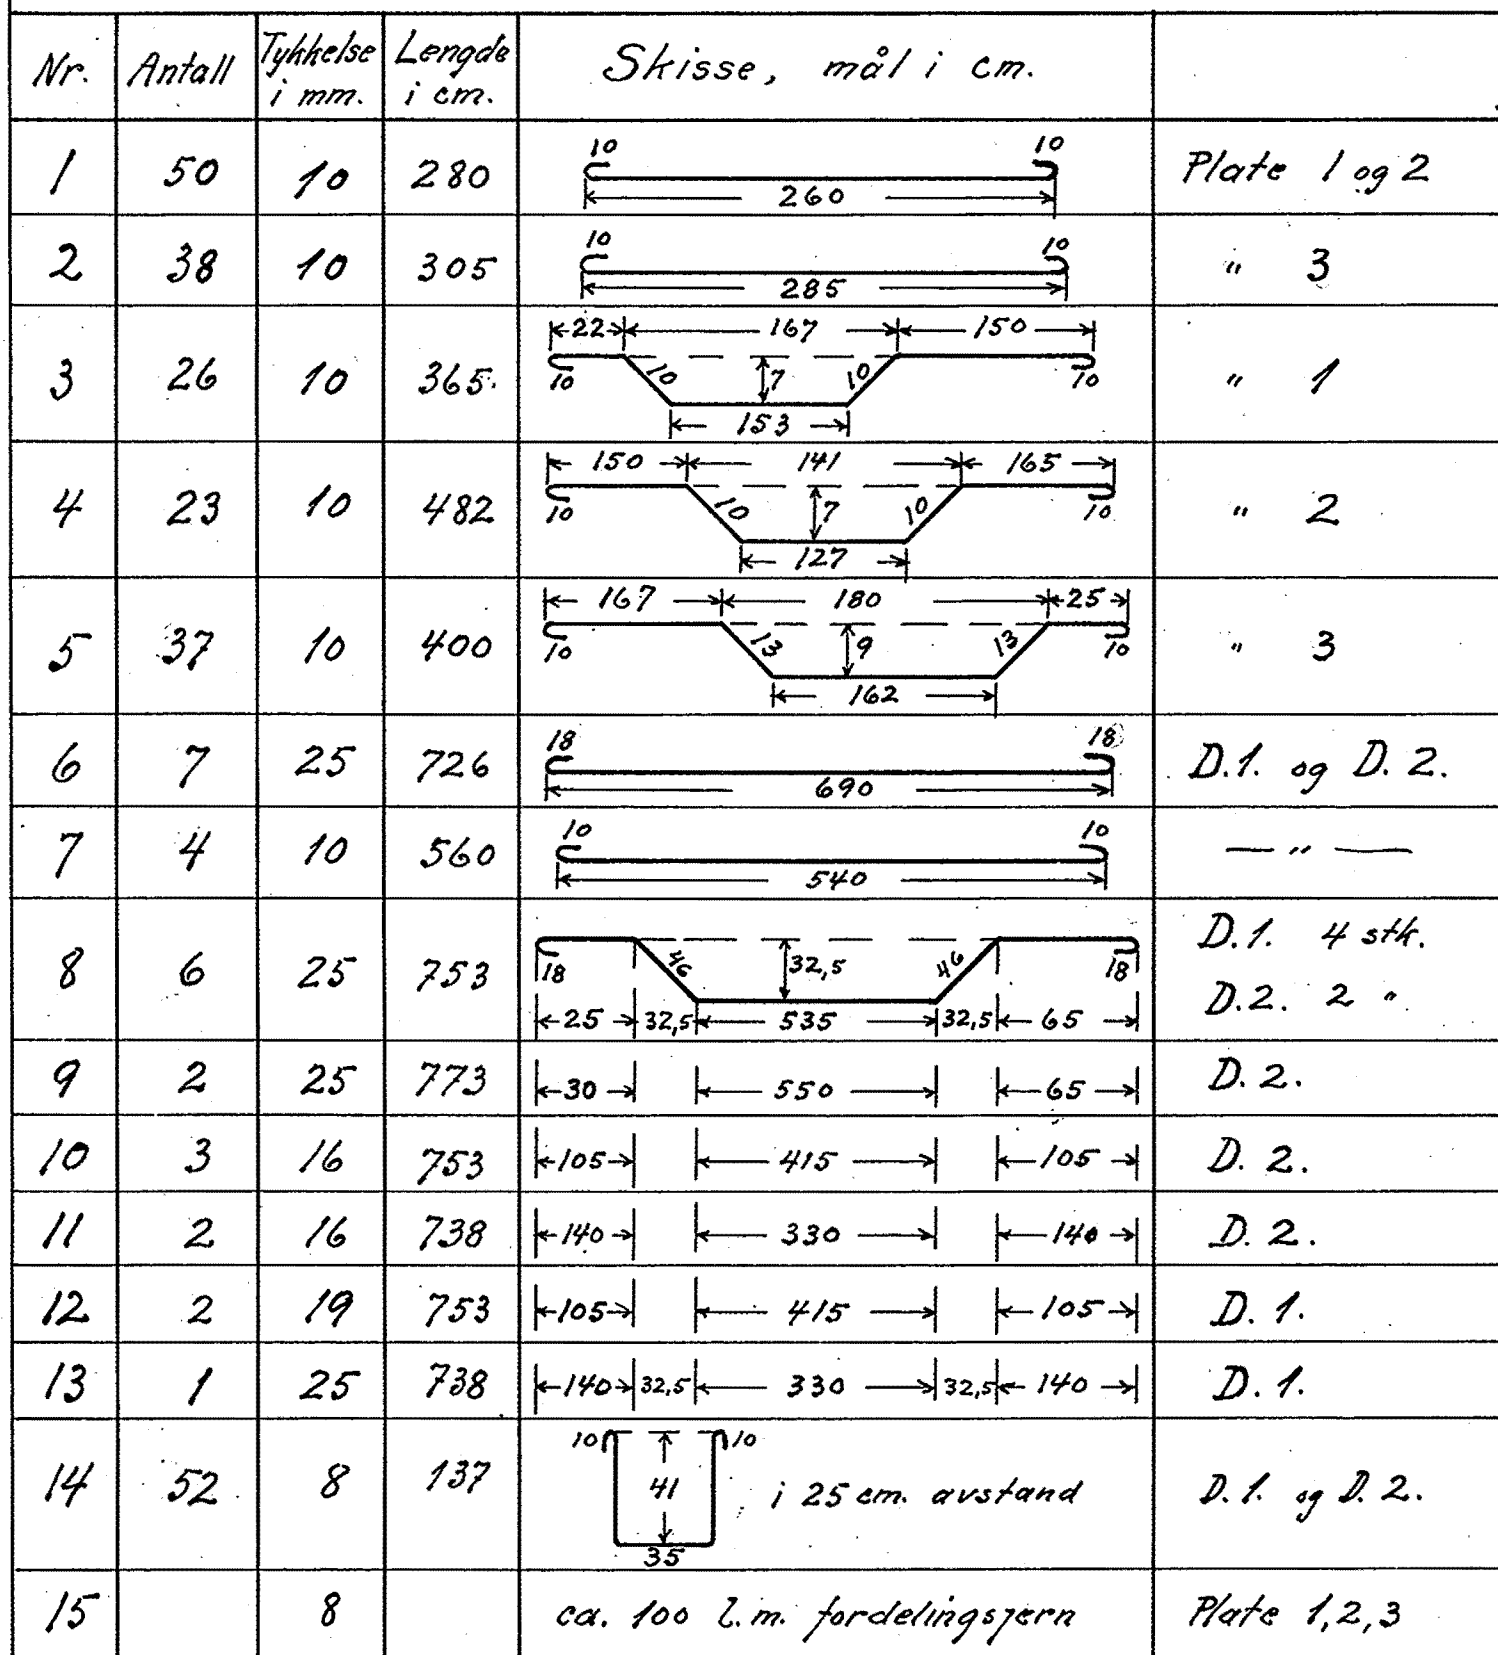 Nr. Antall Tykkelse i mm. Lengde i cm. Skisse, mål i cm.
1 50 10 280 10 10 Plate 1 og 2
260
2 38 10 305 10 10 " 3
285
22 167 150
3 26 10 365 10 10 7 10 10 " 1
153
150 141 165
4 23 10 482 10 10 7 10 10 " 2
127
167 180 25
5 37 10 400 10 13 9 13 10 " 3
162
6 7 25 726 18 18 D.1. og D.2.
690
7 4 10 560 10 10 — " —
540
8 6 25 753 18 46 32,5 46 18 D.1. 4 stk.
25 32,5 535 32,5 65 D.2. 2 "
9 2 25 773 30 550 65 D.2.
10 3 16 753 105 415 105 D.2.
11 2 16 738 140 330 140 D.2.
12 2 19 753 105 415 105 D.1.
13 1 25 738 140 32,5 330 32,5 140 D.1.
10 10
14 52 8 137 41 i 25 cm. avstand D.1. og D.2.
35
15 8 ca. 100 l.m. fordelingsjern Plate 1,2,3